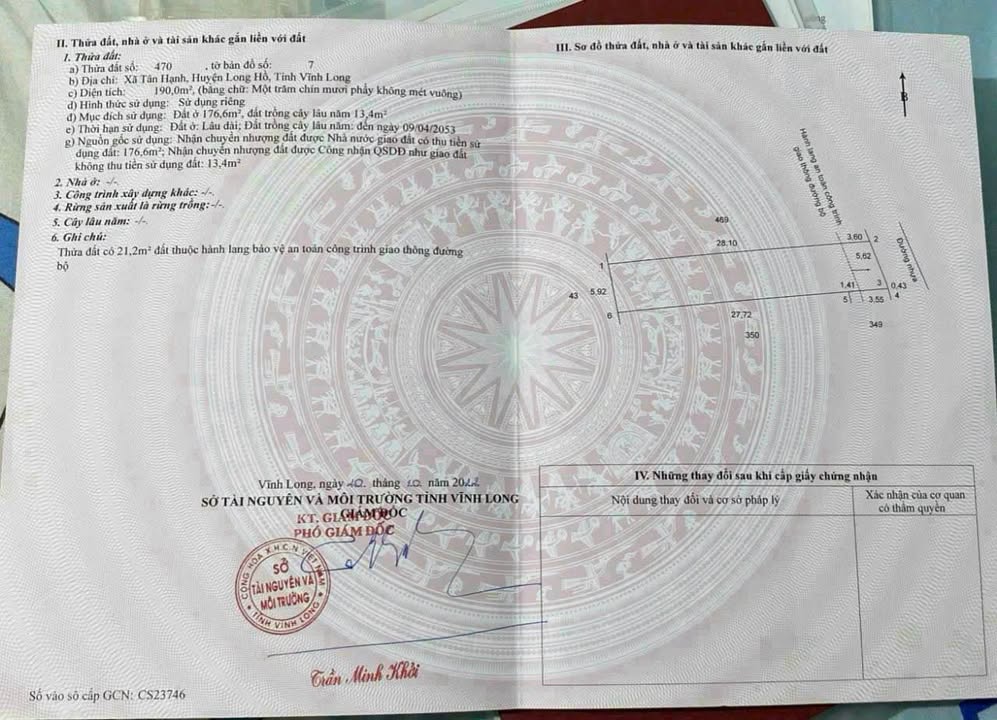 II. Thửa đất, nhà ở và tài sản khác gắn liền với đất
1. Thửa đất:
a) Thửa đất số: 470 , tờ bản đồ số: 7
b) Địa chỉ: Xã Tân Hạnh, Huyện Long Hồ, Tỉnh Vĩnh Long
c) Diện tích: 190,0m², (bằng chữ: Một trăm chín mươi phẩy không mét vuông)
d) Hình thức sử dụng: Sử dụng riêng
đ) Mục đích sử dụng: Đất ở 176,6m², đất trồng cây lâu năm 13,4m²
e) Thời hạn sử dụng: Đất ở: Lâu dài; Đất trồng cây lâu năm: đến ngày 09/04/2053
g) Nguồn gốc sử dụng: Nhận chuyển nhượng đất được Nhà nước giao đất có thu tiền sử
dụng đất: 176,6m²; Nhận chuyển nhượng đất được Công nhận QSDĐ như giao đất
không thu tiền sử dụng đất: 13,4m²
2. Nhà ở: -/-.
3. Công trình xây dựng khác: -/-.
4. Rừng sản xuất là rừng trồng: -/-.
5. Cây lâu năm: -/-.
6. Ghi chú:
Thửa đất có 21,2m² đất thuộc hành lang bảo vệ an toàn công trình giao thông đường
bộ
Vĩnh Long, ngày 10 tháng 10 năm 2022
SỞ TÀI NGUYÊN VÀ MÔI TRƯỜNG TỈNH VĨNH LONG
GIÁM ĐỐC
KT. GIÁM ĐỐC
PHÓ GIÁM ĐỐC
CỘNG HÒA X.H.C.N VIỆT NAM
SỞ
TÀI NGUYÊN VÀ
MÔI TRƯỜNG
TỈNH VĨNH LONG
Trần Minh Khởi
Số vào sổ cấp GCN: CS23746
III. Sơ đồ thửa đất, nhà ở và tài sản khác gắn liền với đất
B
469
28,10
3,60
2
5,62
1
43
5,92
6
27,72
350
1,41
5
3
3,55
0,43
4
349
IV. Những thay đổi sau khi cấp giấy chứng nhận
Nội dung thay đổi và cơ sở pháp lý
Xác nhận của cơ quan
có thẩm quyền